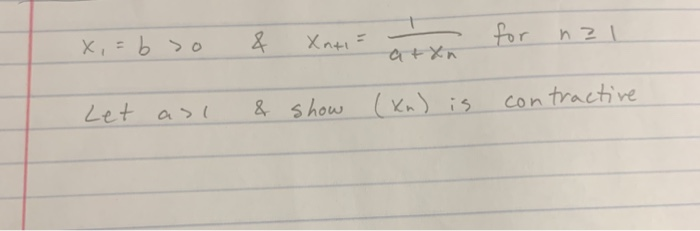 x₁ = b > 0 & xₙ₊₁ = 1/(a + xₙ) for n ≥ 1
Let a > 1 & show (xₙ) is contractive